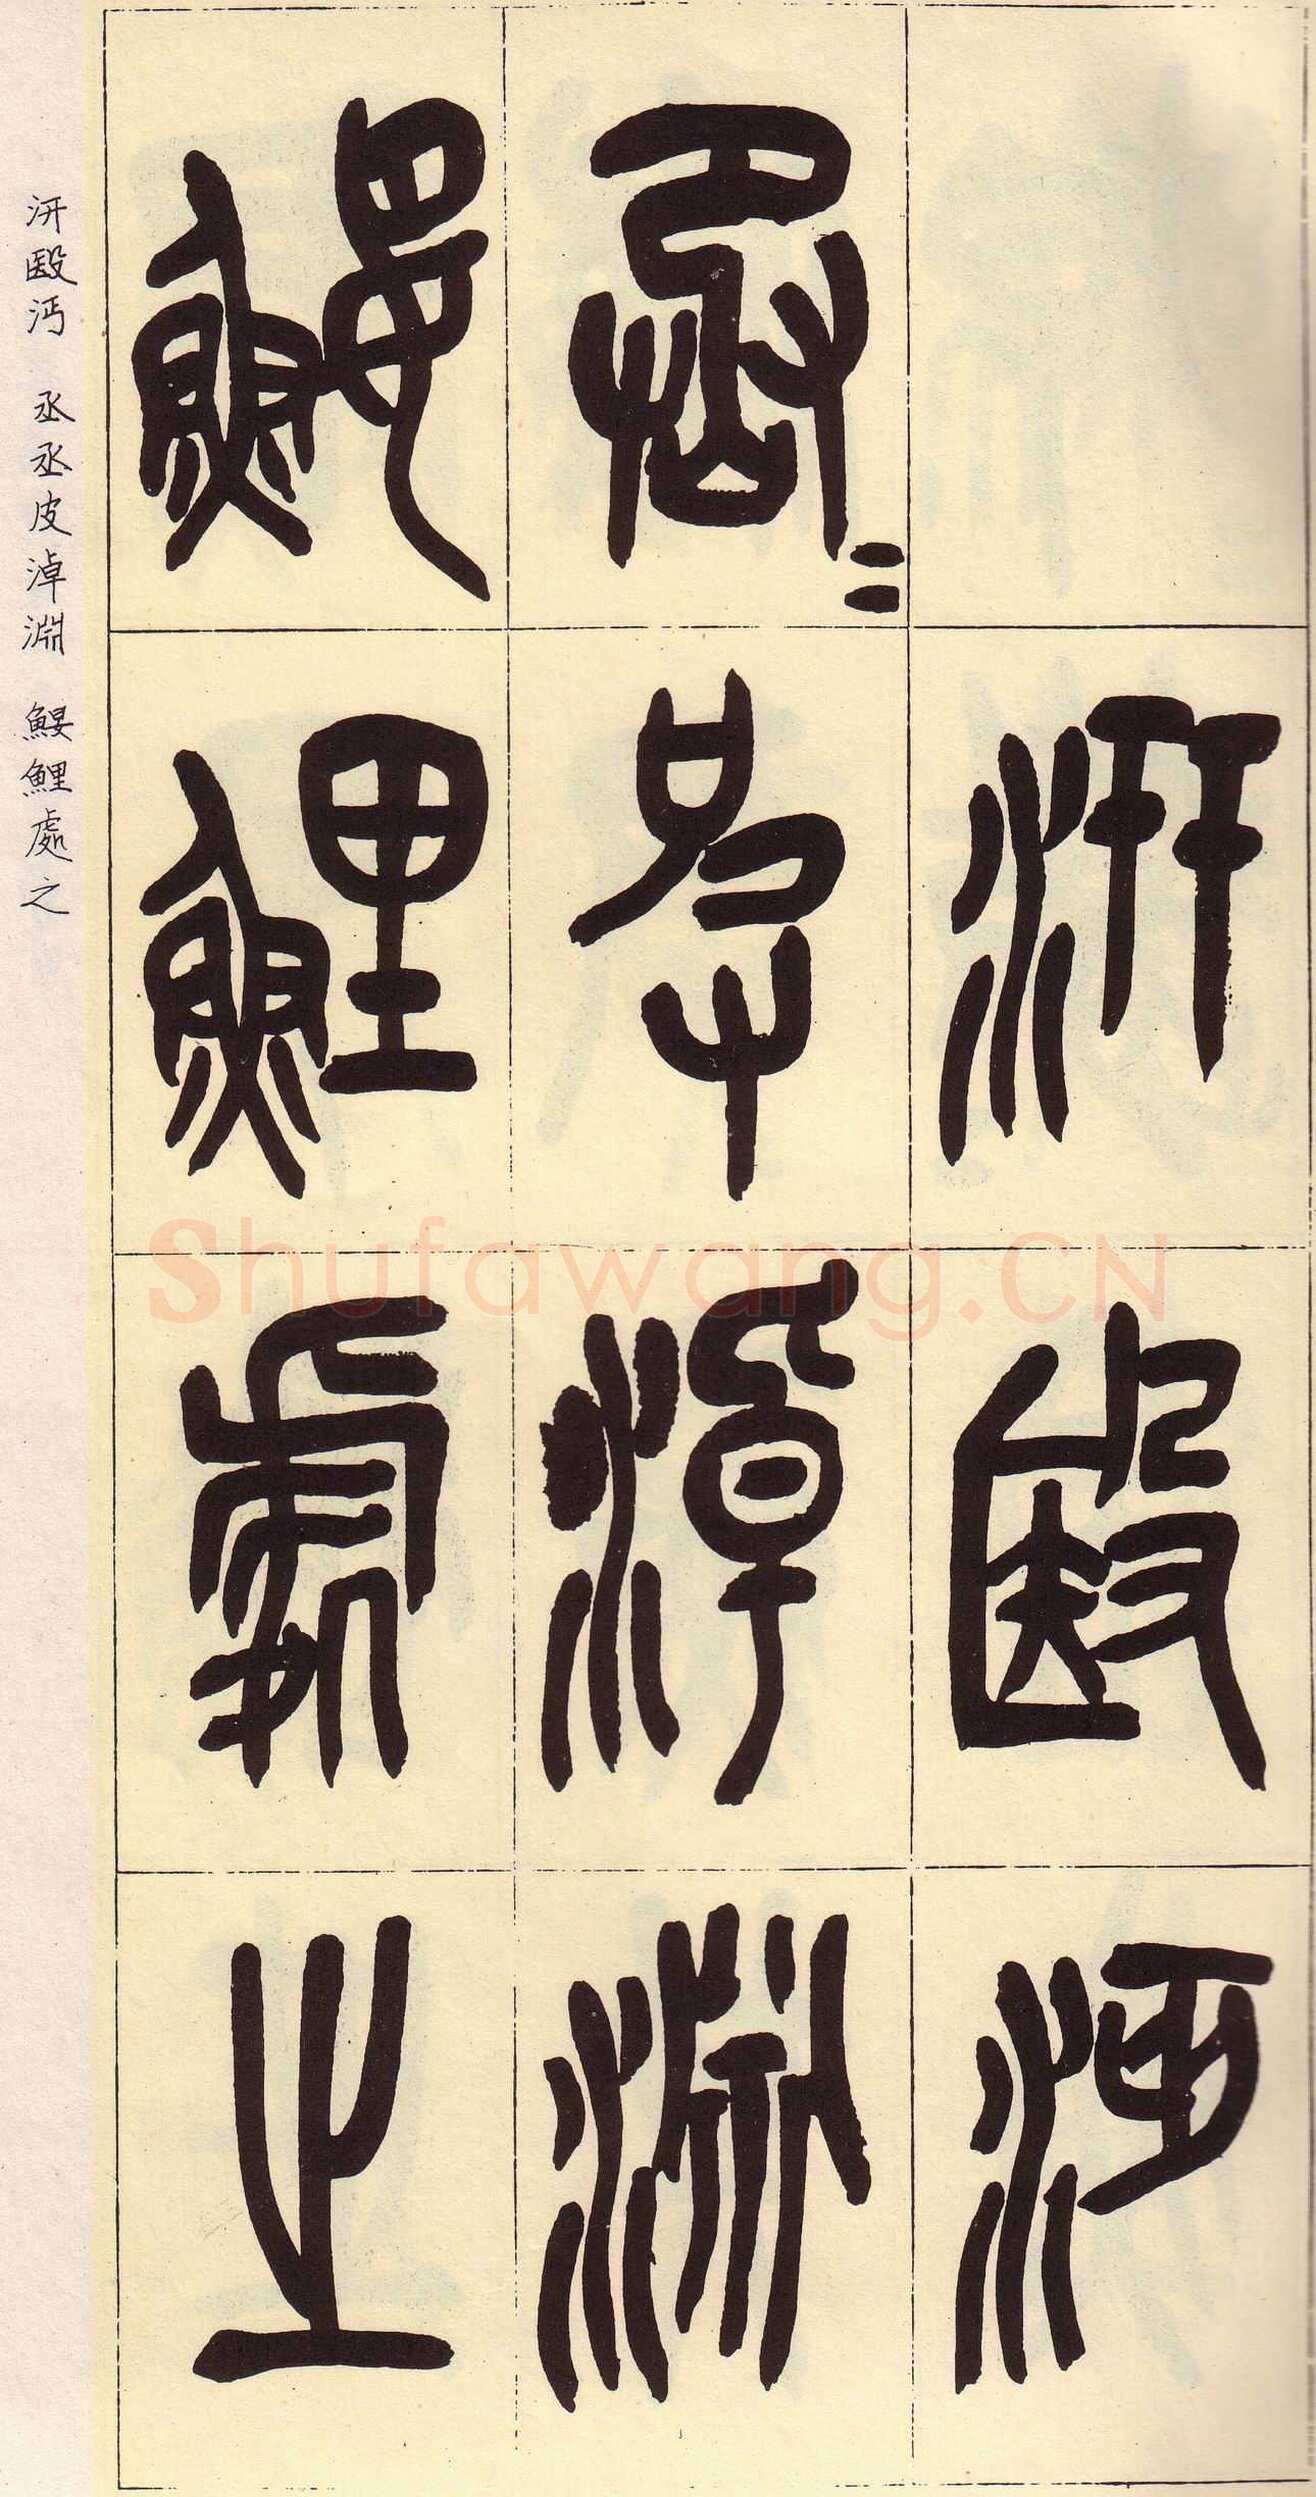 汧殹沔
丞＝皮淖淵
鰋鯉處之
汧殹沔　丞丞皮淖淵　鰋鯉處之
Shufawang.CN